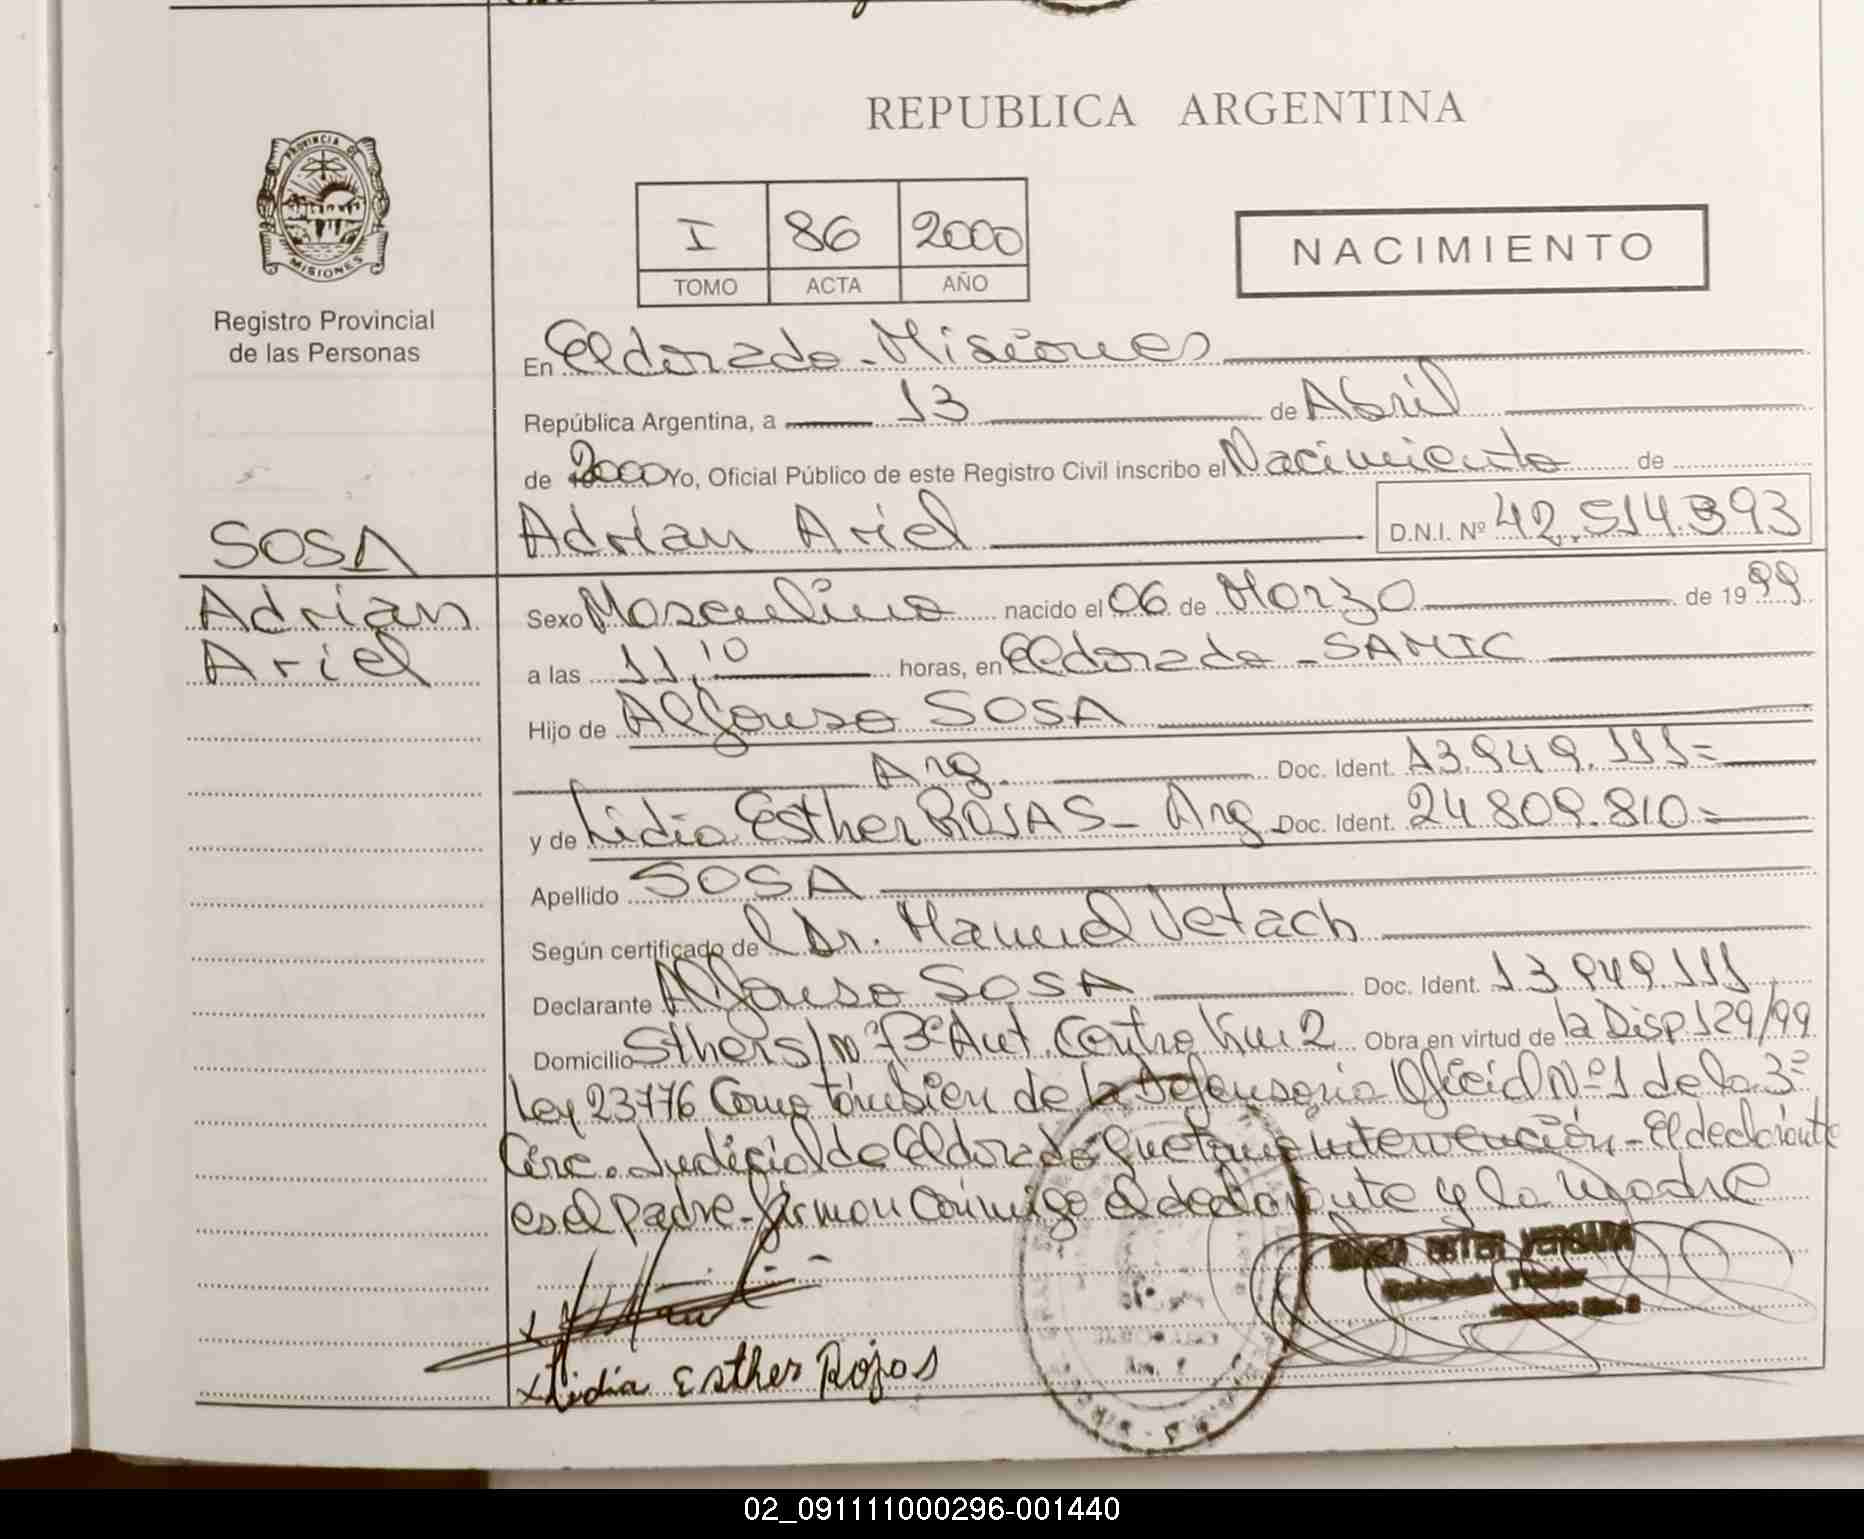 REPUBLICA ARGENTINA
PROVINCIA DE
MISIONES
Registro Provincial
de las Personas
I 86 2000
TOMO ACTA AÑO
NACIMIENTO
En Eldorado - Misiones
República Argentina, a 13 de Abril
de 2000 Yo, Oficial Público de este Registro Civil inscribo el Nacimiento de
SOSA
Adrian Ariel D.N.I. Nº 42.514.393
Adrian
Ariel
Sexo Masculino nacido el 06 de Marzo de 1999
a las 11,10 horas, en Eldorado - SAMIC
Hijo de Alfonso SOSA
Arg. Doc. Ident. 13.949.111=
y de Lidia Esther ROJAS - Arg. Doc. Ident. 24.809.810=
Apellido SOSA
Según certificado del Dr. Manuel Jetach
Declarante Alfonso SOSA Doc. Ident. 13.949.111
Domicilio S/nº Aut. Centro Km 2 Obra en virtud de la Disp. 129/99
Ley 23776 Como también de la Defensoria Oficial Nº 1 de la 3º
Circ. Judicial de Eldorado que toma intervención - El declarante
es el padre - firman conmigo el declarante y la madre
ESTER VERGARA
x Lidia Esther Rojas
02_091111000296-001440